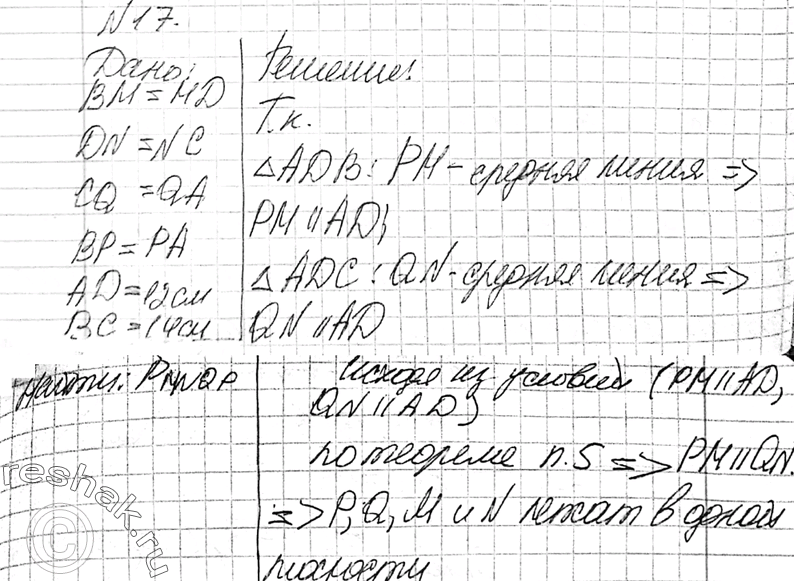 N 17.
Дано:
BM = MD
DN = NC
CQ = QA
BP = PA
AD = 12 см
BC = 14 см
Найти: PMNQP
Решение:
Т.к.
△ADB: PM - средняя линия =>
PM || AD;
△ADC: QN - средняя линия =>
QN || AD
исходя из условий (PM || AD,
QN || AD)
по теореме п.5 => PM || QN.
=> P, Q, M и N лежат в одной
плоскости
reshak.ru